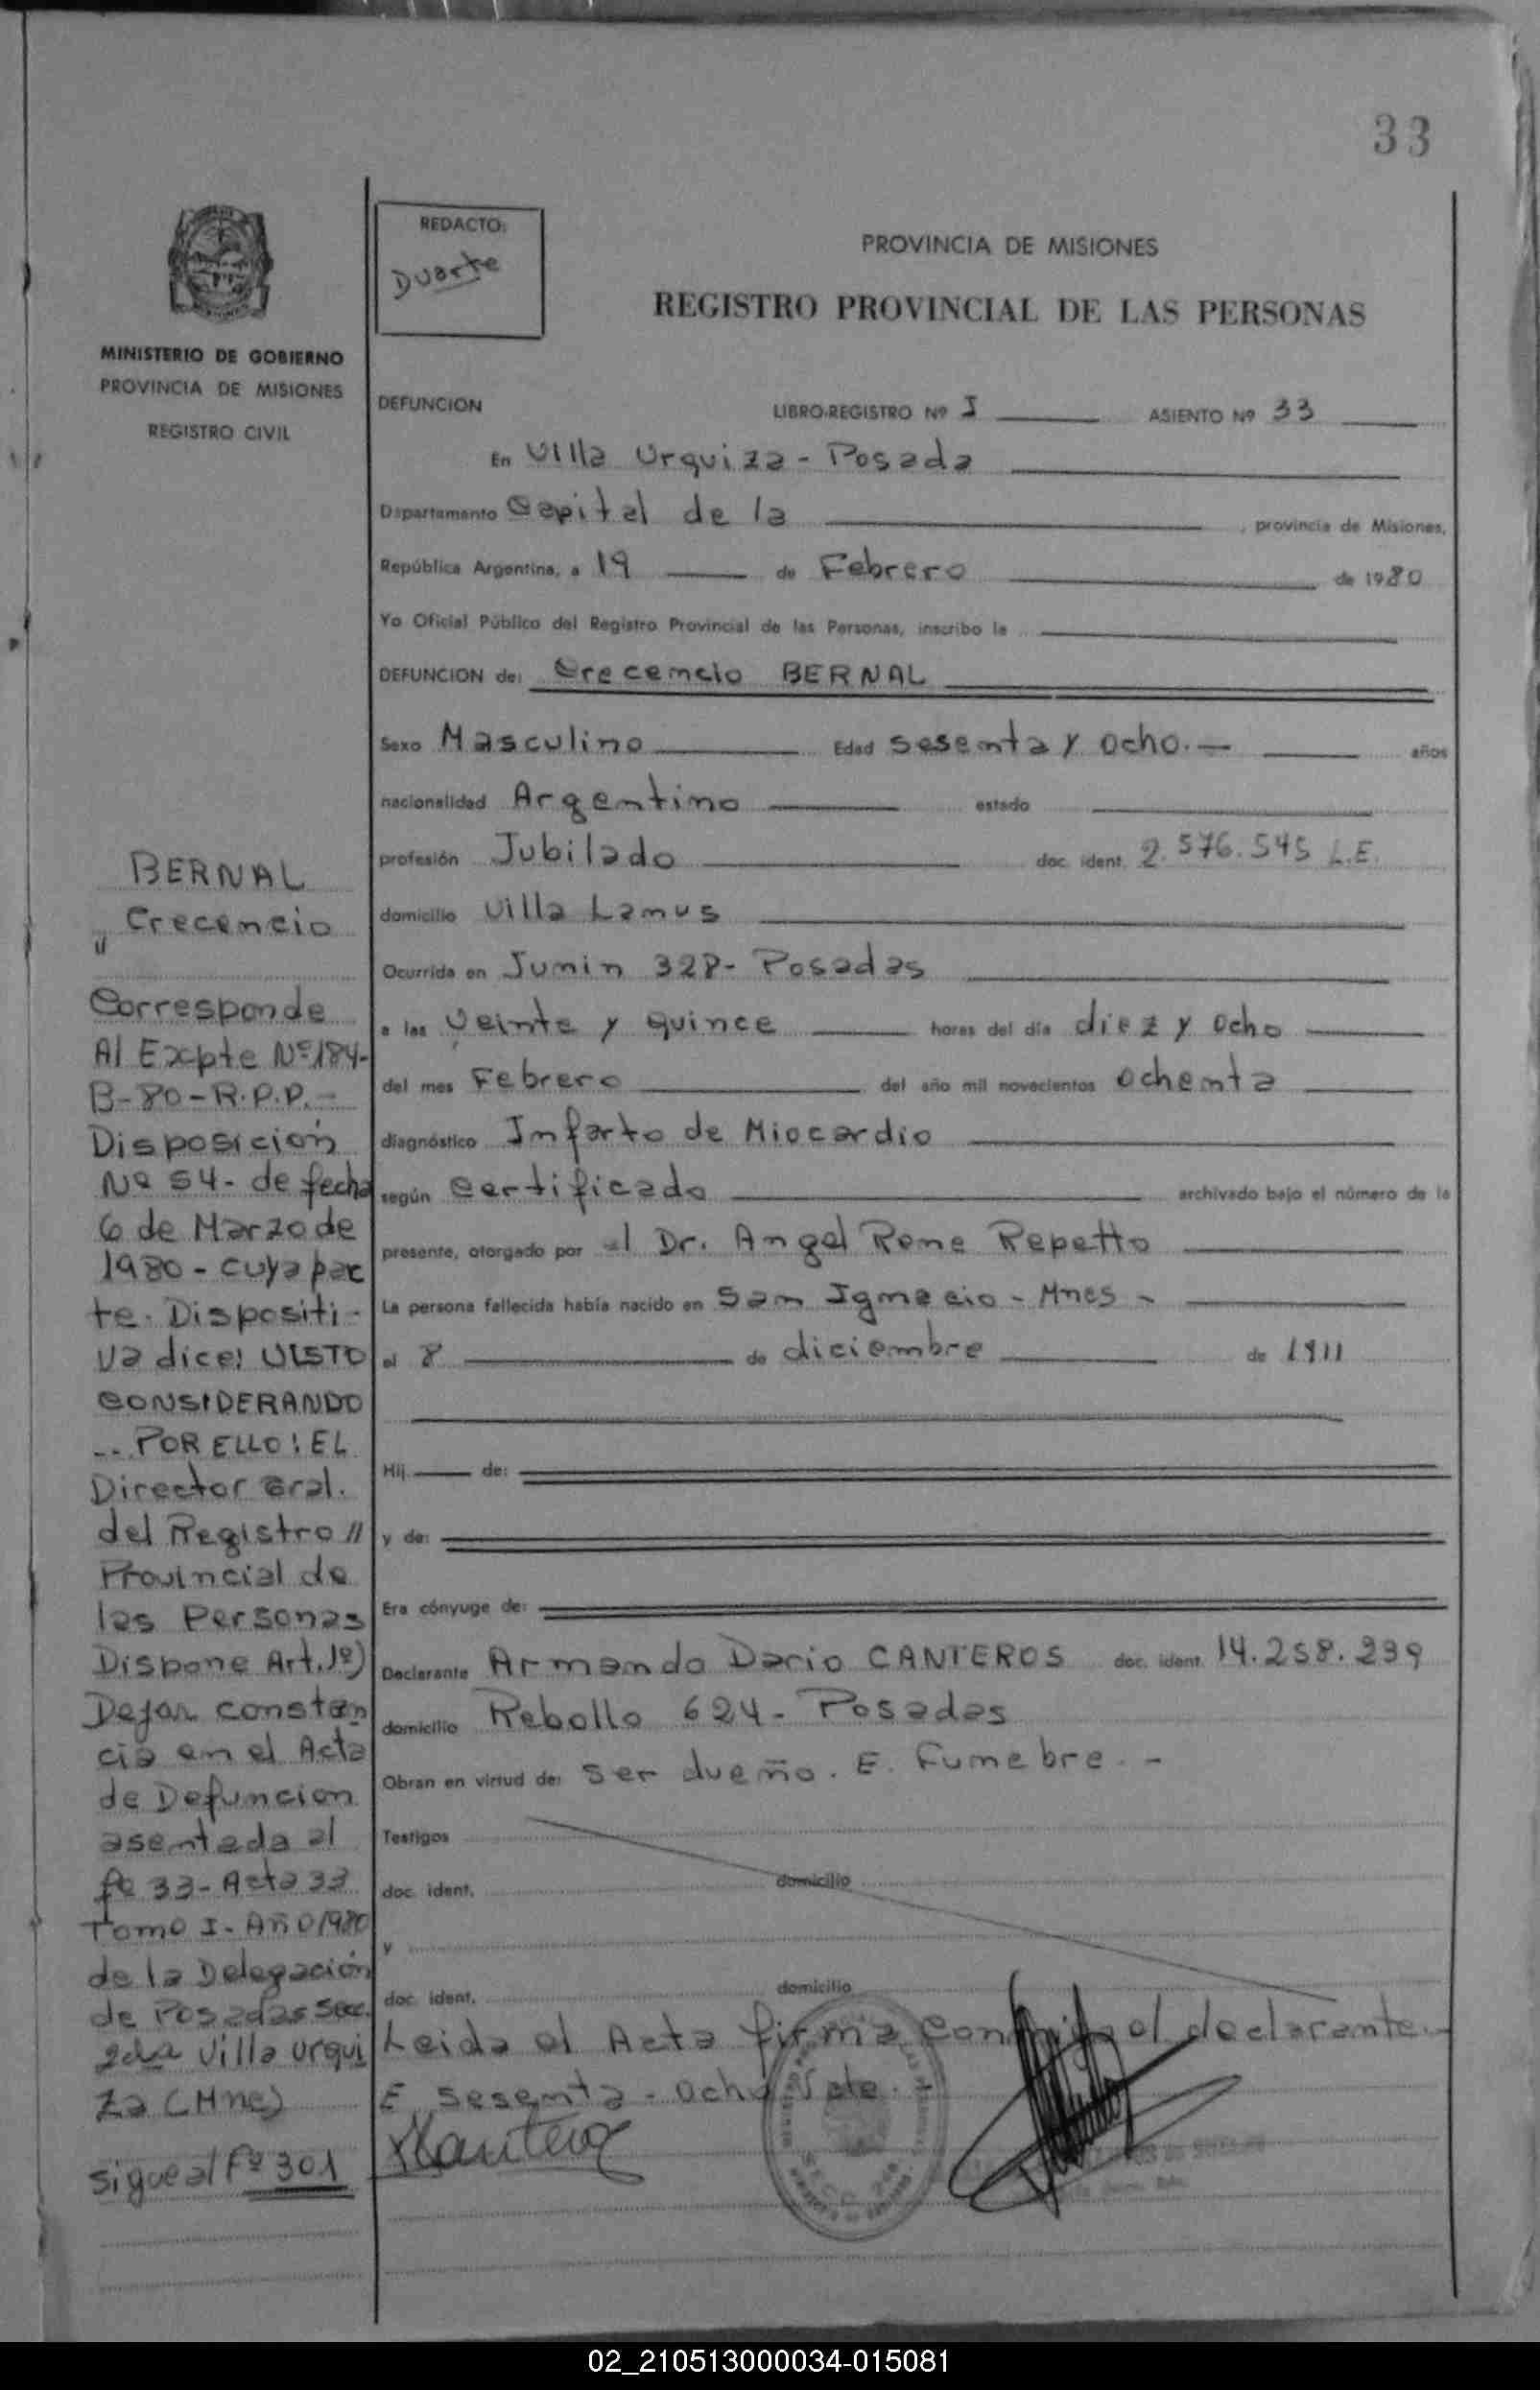 33
REDACTO:
Duarte
PROVINCIA DE MISIONES
REGISTRO PROVINCIAL DE LAS PERSONAS
MINISTERIO DE GOBIERNO
PROVINCIA DE MISIONES
REGISTRO CIVIL
DEFUNCION LIBRO-REGISTRO Nº I ASIENTO Nº 33
En Villa Urquiza - Posada
Departamento Capital de la , provincia de Misiones,
República Argentina, a 19 de Febrero de 1980
Yo Oficial Público del Registro Provincial de las Personas, inscribo la
DEFUNCION de: Crecencio BERNAL
Sexo Masculino Edad sesenta y ocho.- años
nacionalidad Argentino estado
profesión Jubilado doc. ident. 2.576.545 L.E.
domicilio Villa Lanus
Ocurrida en Junin 328- Posadas
a las Veinte y quince horas del día diez y ocho
del mes Febrero del año mil novecientos ochenta
diagnóstico Infarto de Miocardio
según certificado archivado bajo el número de la
presente, otorgado por el Dr. Angel Rene Repetto
La persona fallecida había nacido en San Ignacio - Mnes -
el 8 de diciembre de 1911
Hij de:
y de:
Era cónyuge de:
Declarante Armando Dario CANTEROS doc. ident. 14.258.239
domicilio Rebollo 624- Posadas
Obran en virtud de: ser dueño. E. Funebre. -
Testigos
doc. ident. domicilio
y
doc. ident. domicilio
Leida el Acta firma conmigo el declarante.-
E sesenta - ocho Vale. -
BERNAL
Crecencio
"
Corresponde
Al Expte Nº 184-
B-80-R.P.P.-
Disposición
Nº 54- de fecha
6 de Marzo de
1980 - cuya par
te. Dispositi-
va dice: VISTO
CONSIDERANDO
... POR ELLO: EL
Director Gral.
del Registro //
Provincial de
las Personas
Dispone Art. 1º)
Dejar constan
cia en el Acta
de Defuncion
asentada al
fº 33- Acta 33
Tomo I- Año 1980
de la Delegación
de Posadas Secc.
2da Villa Urqui
za (Mnes)
sigue al Fº 301
02_210513000034-015081